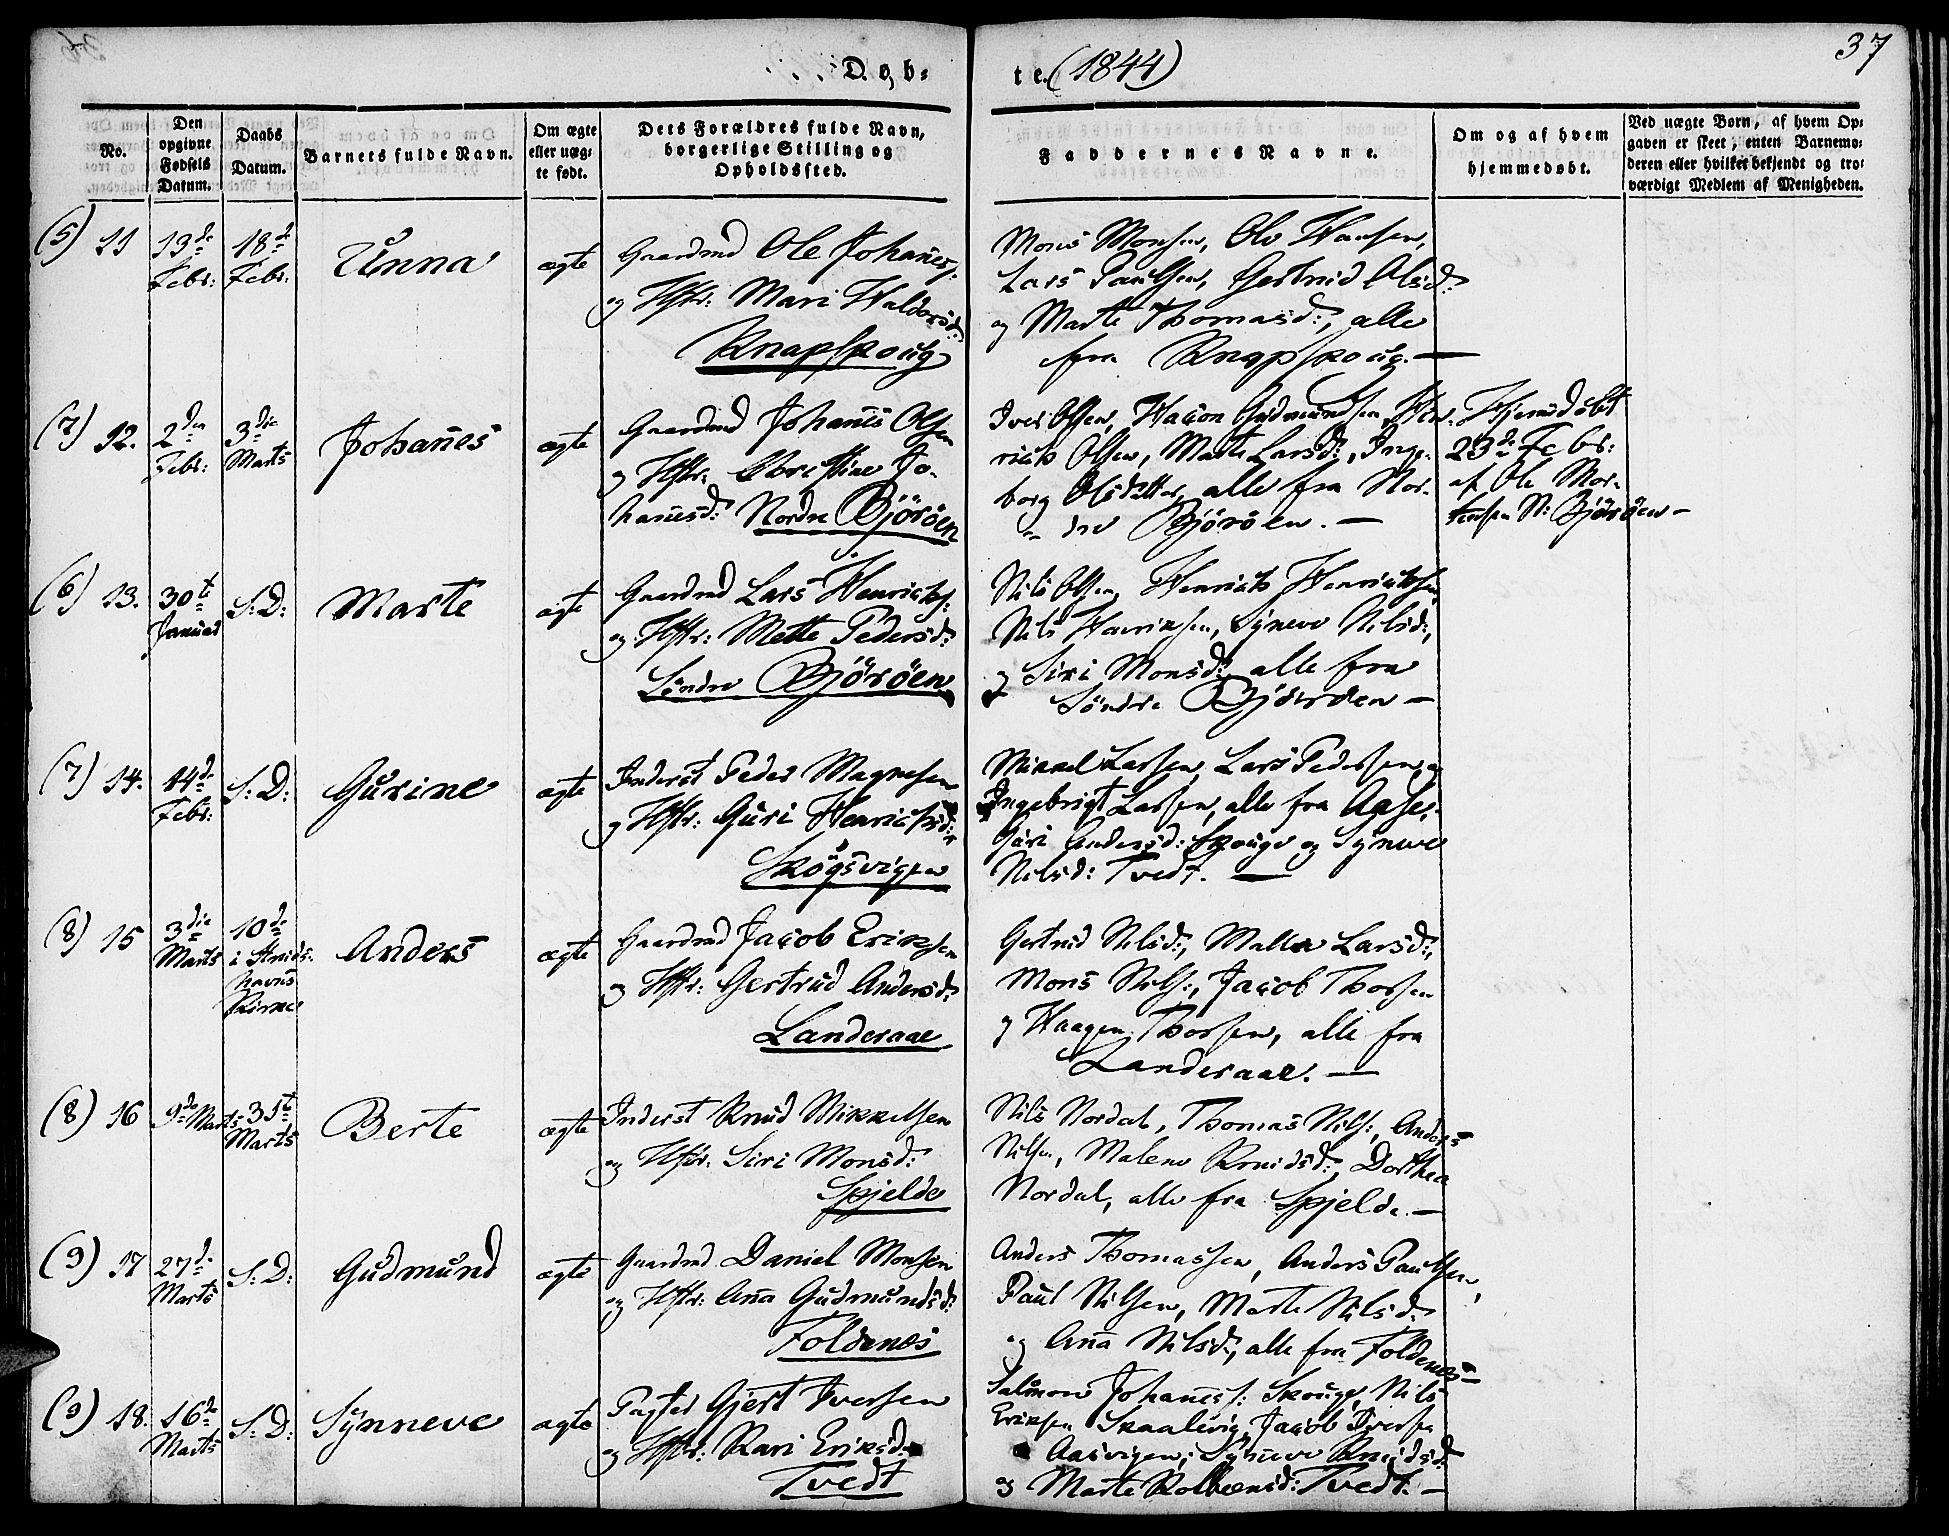 37
Døb-
te. (1844)
No.
Den opgivne Fødsels Datum.
Daabs Datum.
Barnets fulde Navn.
Om ægte eller uæg- te født.
Dets Forældres fulde Navn, borgerlige Stilling og Opholdssted.
Faddernes Navne.
Om og af hvem hjemmedøbt.
Ved uægte Børn, af hvem Op- gaven er skeet, enten Barnemo- deren eller hvilket bekjendt og tro- værdigt Medlem af Menigheden.
(5) 11 13de Febr: 18de Febr: Unna ægte
Gaardmd Ole Johanes:
og Hstr: Mari Haldorsd:
Knapskoug
Mons Monsen, Ole Hansen,
Lars Paulsen, Gertrud Olsd:
og Marte Thomasd:, alle
fra Knapskoug. —
(7) 12. 2den Febr: 3die Marts Johanes ægte
Gaardmd Johanes Olsen
og Hstr: Christine Jo-
hanesd: Nordre Björöen
Iver Olsen, Hacon Gudmundsen, Hen-
rich Olsen, Marte Larsd:, Inge-
borg Olsdatter, alle fra Nor-
dre Björöen. —
Hjemdöbt
23de Febr:
af Ole Mor-
tensen N: Björöen —
(6) 13. 30te Januar S: D: Marte ægte
Gaardmd Lars Henrichs:
og Hstr: Mette Pedersd:
Söndre Björöen
Nils Olsen, Henrich Henrichsen,
Nils Henriksen, Syneve Nilsd:,
og Siri Monsd: alle fra
Söndre Björöen —
(7) 14. 14de Febr: S: D: Gurine ægte
Inderst Peder Magnesen
og Hstr: Guri Henrichsd:
Skögsvigen
Mikkel Larsen, Lars Pedersen og
Ingebrigt Larsen, alle fra Aase,
Guri Andersd: Skouge og Syneve
Nilsd: Tvedt. —
(8) 15 3die Marts 10de i Strids- havns Kirke Anders ægte
Gaardmd Jacob Eriksen
og Hstr: Gertrud Andersd:
Landeraae
Gertrud Nilsd:, Malla Larsd:,
Mons Nils:, Jacob Thorsen
og Haagen Thorsen, alle fra
Landeraae. —
(8) 16 9de Marts 31te Marts Berte ægte
Inderst Knud Mikkelsen
og Hstr: Siri Monsd:
Spjelde
Nils Nordal, Thomas Nils:, Anders
Nilsen, Malene Knudsd:, Dorthea
Nordal, alle fra Spjelde. —
(9) 17 27de Marts S: D: Gudmund ægte
Gaardmd Daniel Monsen
og Hstr: Ana Gudmundsd:
Foldenes
Anders Thomassen, Anders Paulsen,
Paul Nilsen, Marte Nilsd:
og Ana Nilsd:, alle fra Foldenes —
(9) 18. 16de Marts S: D: Synneve ægte
Pagter Gjert Iversen
og Hstr: Kari Eriksd:
Tvedt
Salmon Johaness: Skouge, Nils
Eriksen Skaalevig, Jacob Iversen
Aasvigen, Syneve Knudsd:
og Marte Kolbensd: Tvedt. —